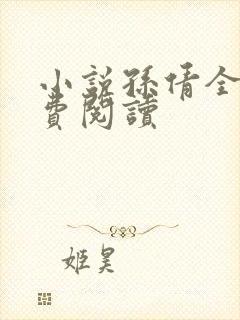 小説孫倩全
費閱讀
姬昊